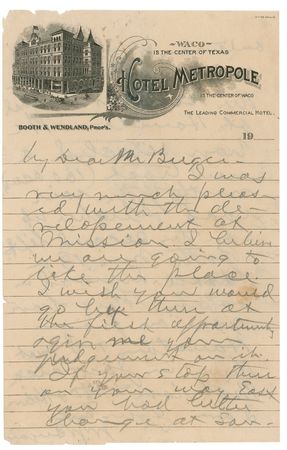 WACO
IS THE CENTER OF TEXAS
HOTEL METROPOLE
IS THE CENTER OF WACO
THE LEADING COMMERCIAL HOTEL.
BOOTH & WENDLAND, PROP'S.
19
My Dear Mr
I was
very much pleas-
ed with the de-
velopement at
Mission. I believe
we are going to
like the place.
I wish you would
go by there at
the first oppertunity
give me your
judgement on it.
If you stop there
on your way East
you had better
change at San